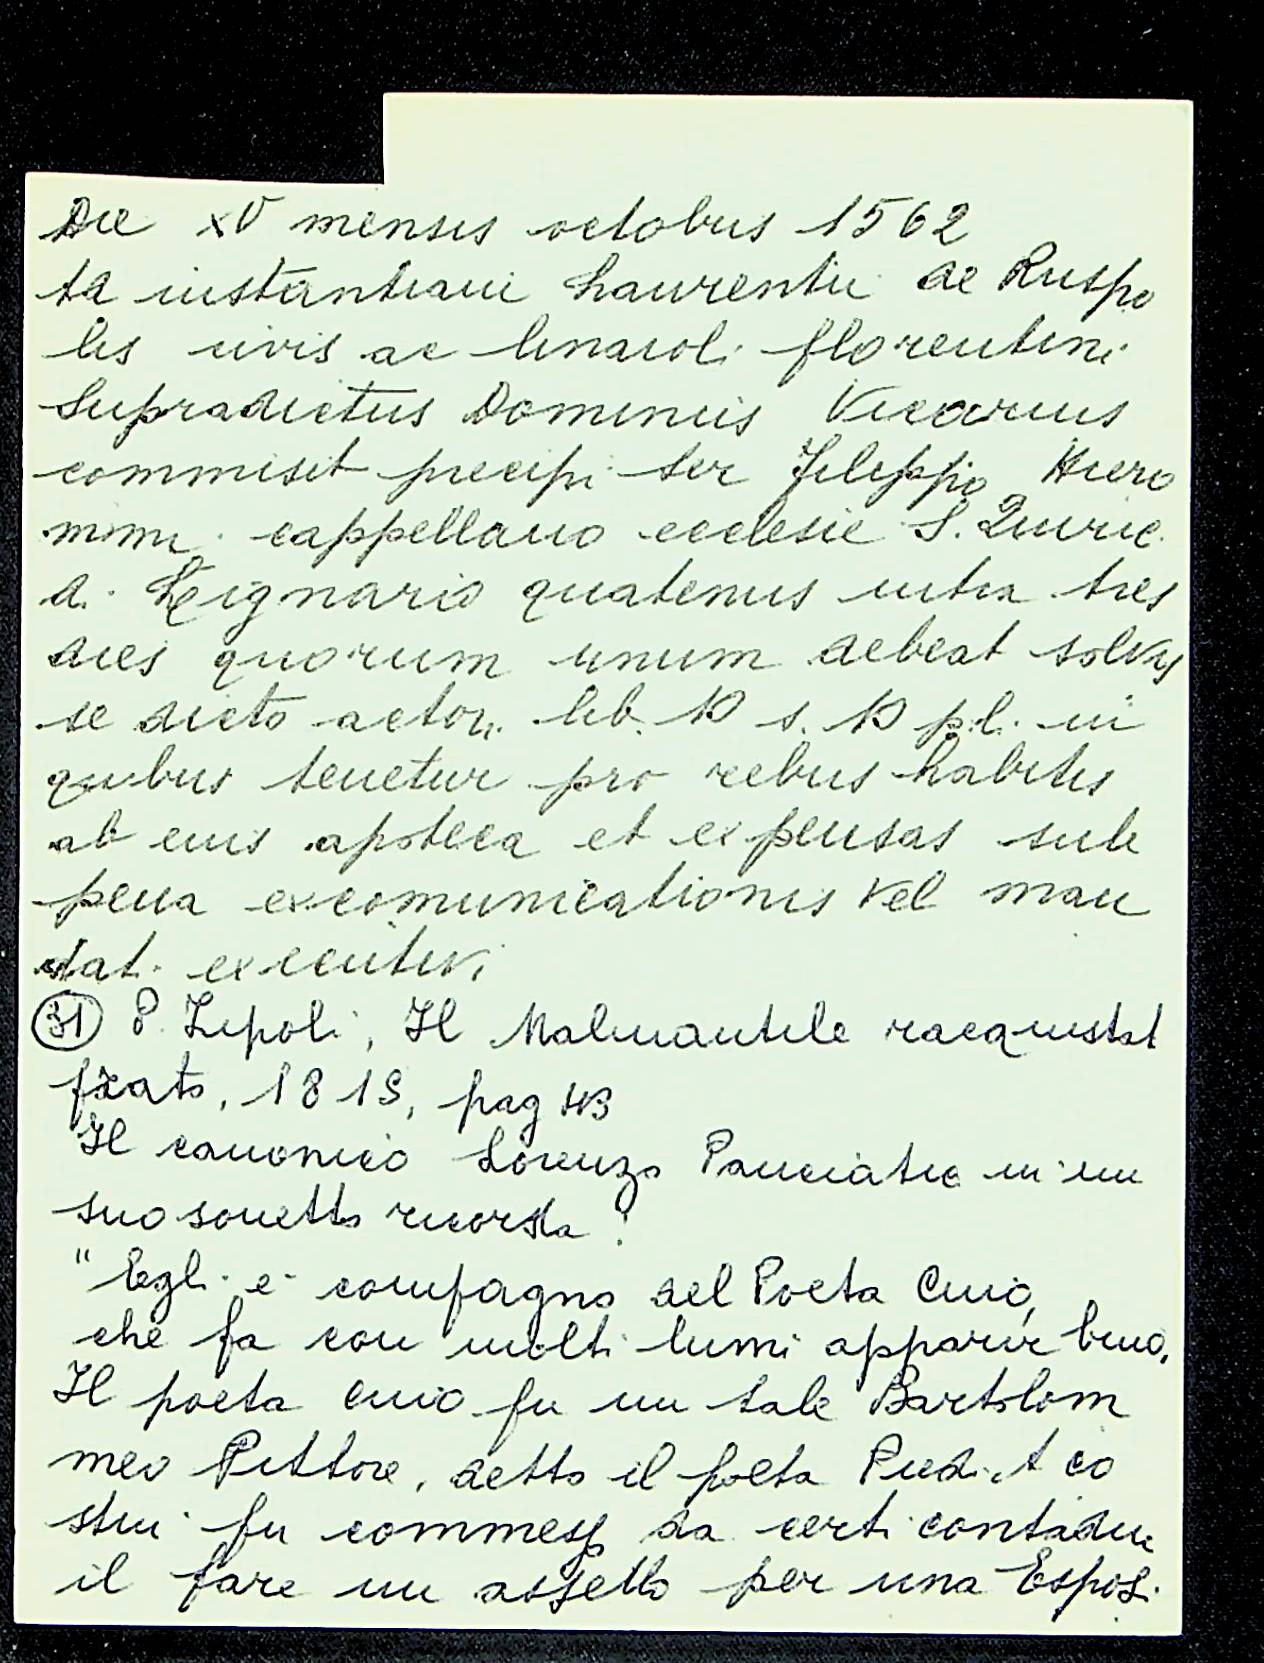 Die XV mensis octobris 1562
ta instantiam Laurentii de Ruspo
lis civis ac linaioli florentini
Supradictus Dominus Vicarius
commisit precipi ser Filippo Hiero
nimi cappellano ecclesie S. Quiric
a Legnario quatenus intra tres
dies quorum unum debeat solvis
se dicto actori lib. 10 s. 10 p.l. in
quibus tenetur pro rebus habitis
ab eius apoteca et expensas sub
pena excomunicationis vel man
dati executivi
(31) P. Lipoli, Il Malmantile racquistat
Prato, 1815, pag 43
Il canonico Lorenzo Panciatic in un
suo sonetto ricorda:
"Egli è compagno del Poeta Cuio,
che fa con molti lumi apparir buio.
Il poeta Cuio fu un tale Bartolom
meo Pittore, detto il poeta Piedi. A co
stui fu commesso da certi contadini
il fare un assetto per una Espos.